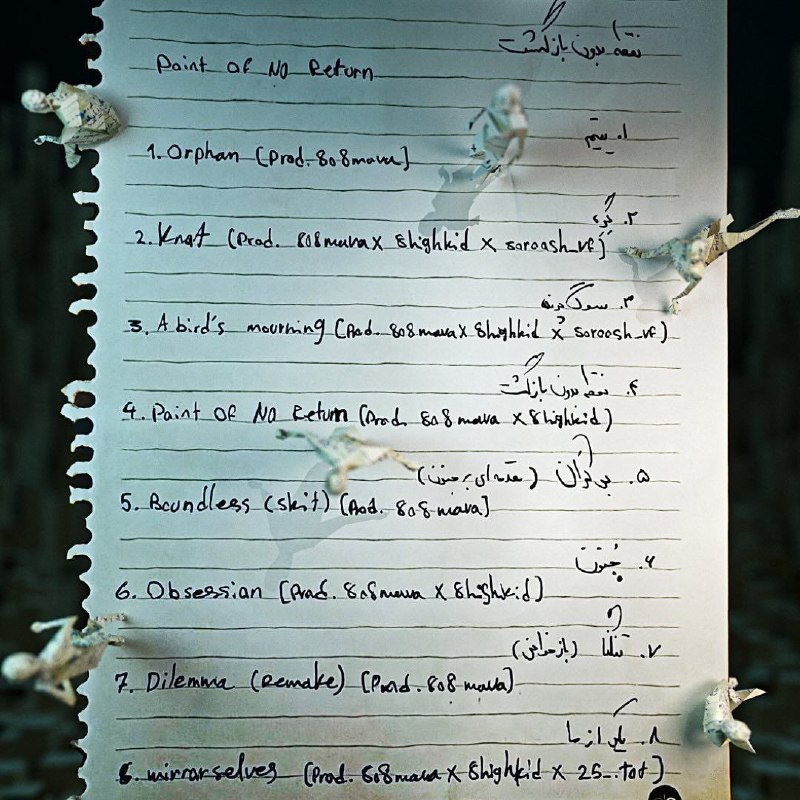 نقطه بدون بازگشت
Point of No Return
۱. یتیم
1. Orphan (Prod. 808mava)
۲. گره
2. Knot (Prod. 808mava x 8highkid x soroosh_vf)
۳. سوگ پرنده
3. A bird's mourning (Prod. 808mava x 8highkid x soroosh_vf)
۴. نقطه بدون بازگشت
4. Point of No Return (Prod. 808mava x 8highkid)
۵. بی‌کران (مقدمه‌ای بر جنون)
5. Boundless (skit) (Prod. 808mava)
۶. جنون
6. Obsession (Prod. 808mava x 8highkid)
۷. تنگنا (بازخوانی)
7. Dilemma (Remake) (Prod. 808mava)
۸. یکی از ما
8. mirrorselves (Prod. 808mava x 8highkid x 25_.tof)